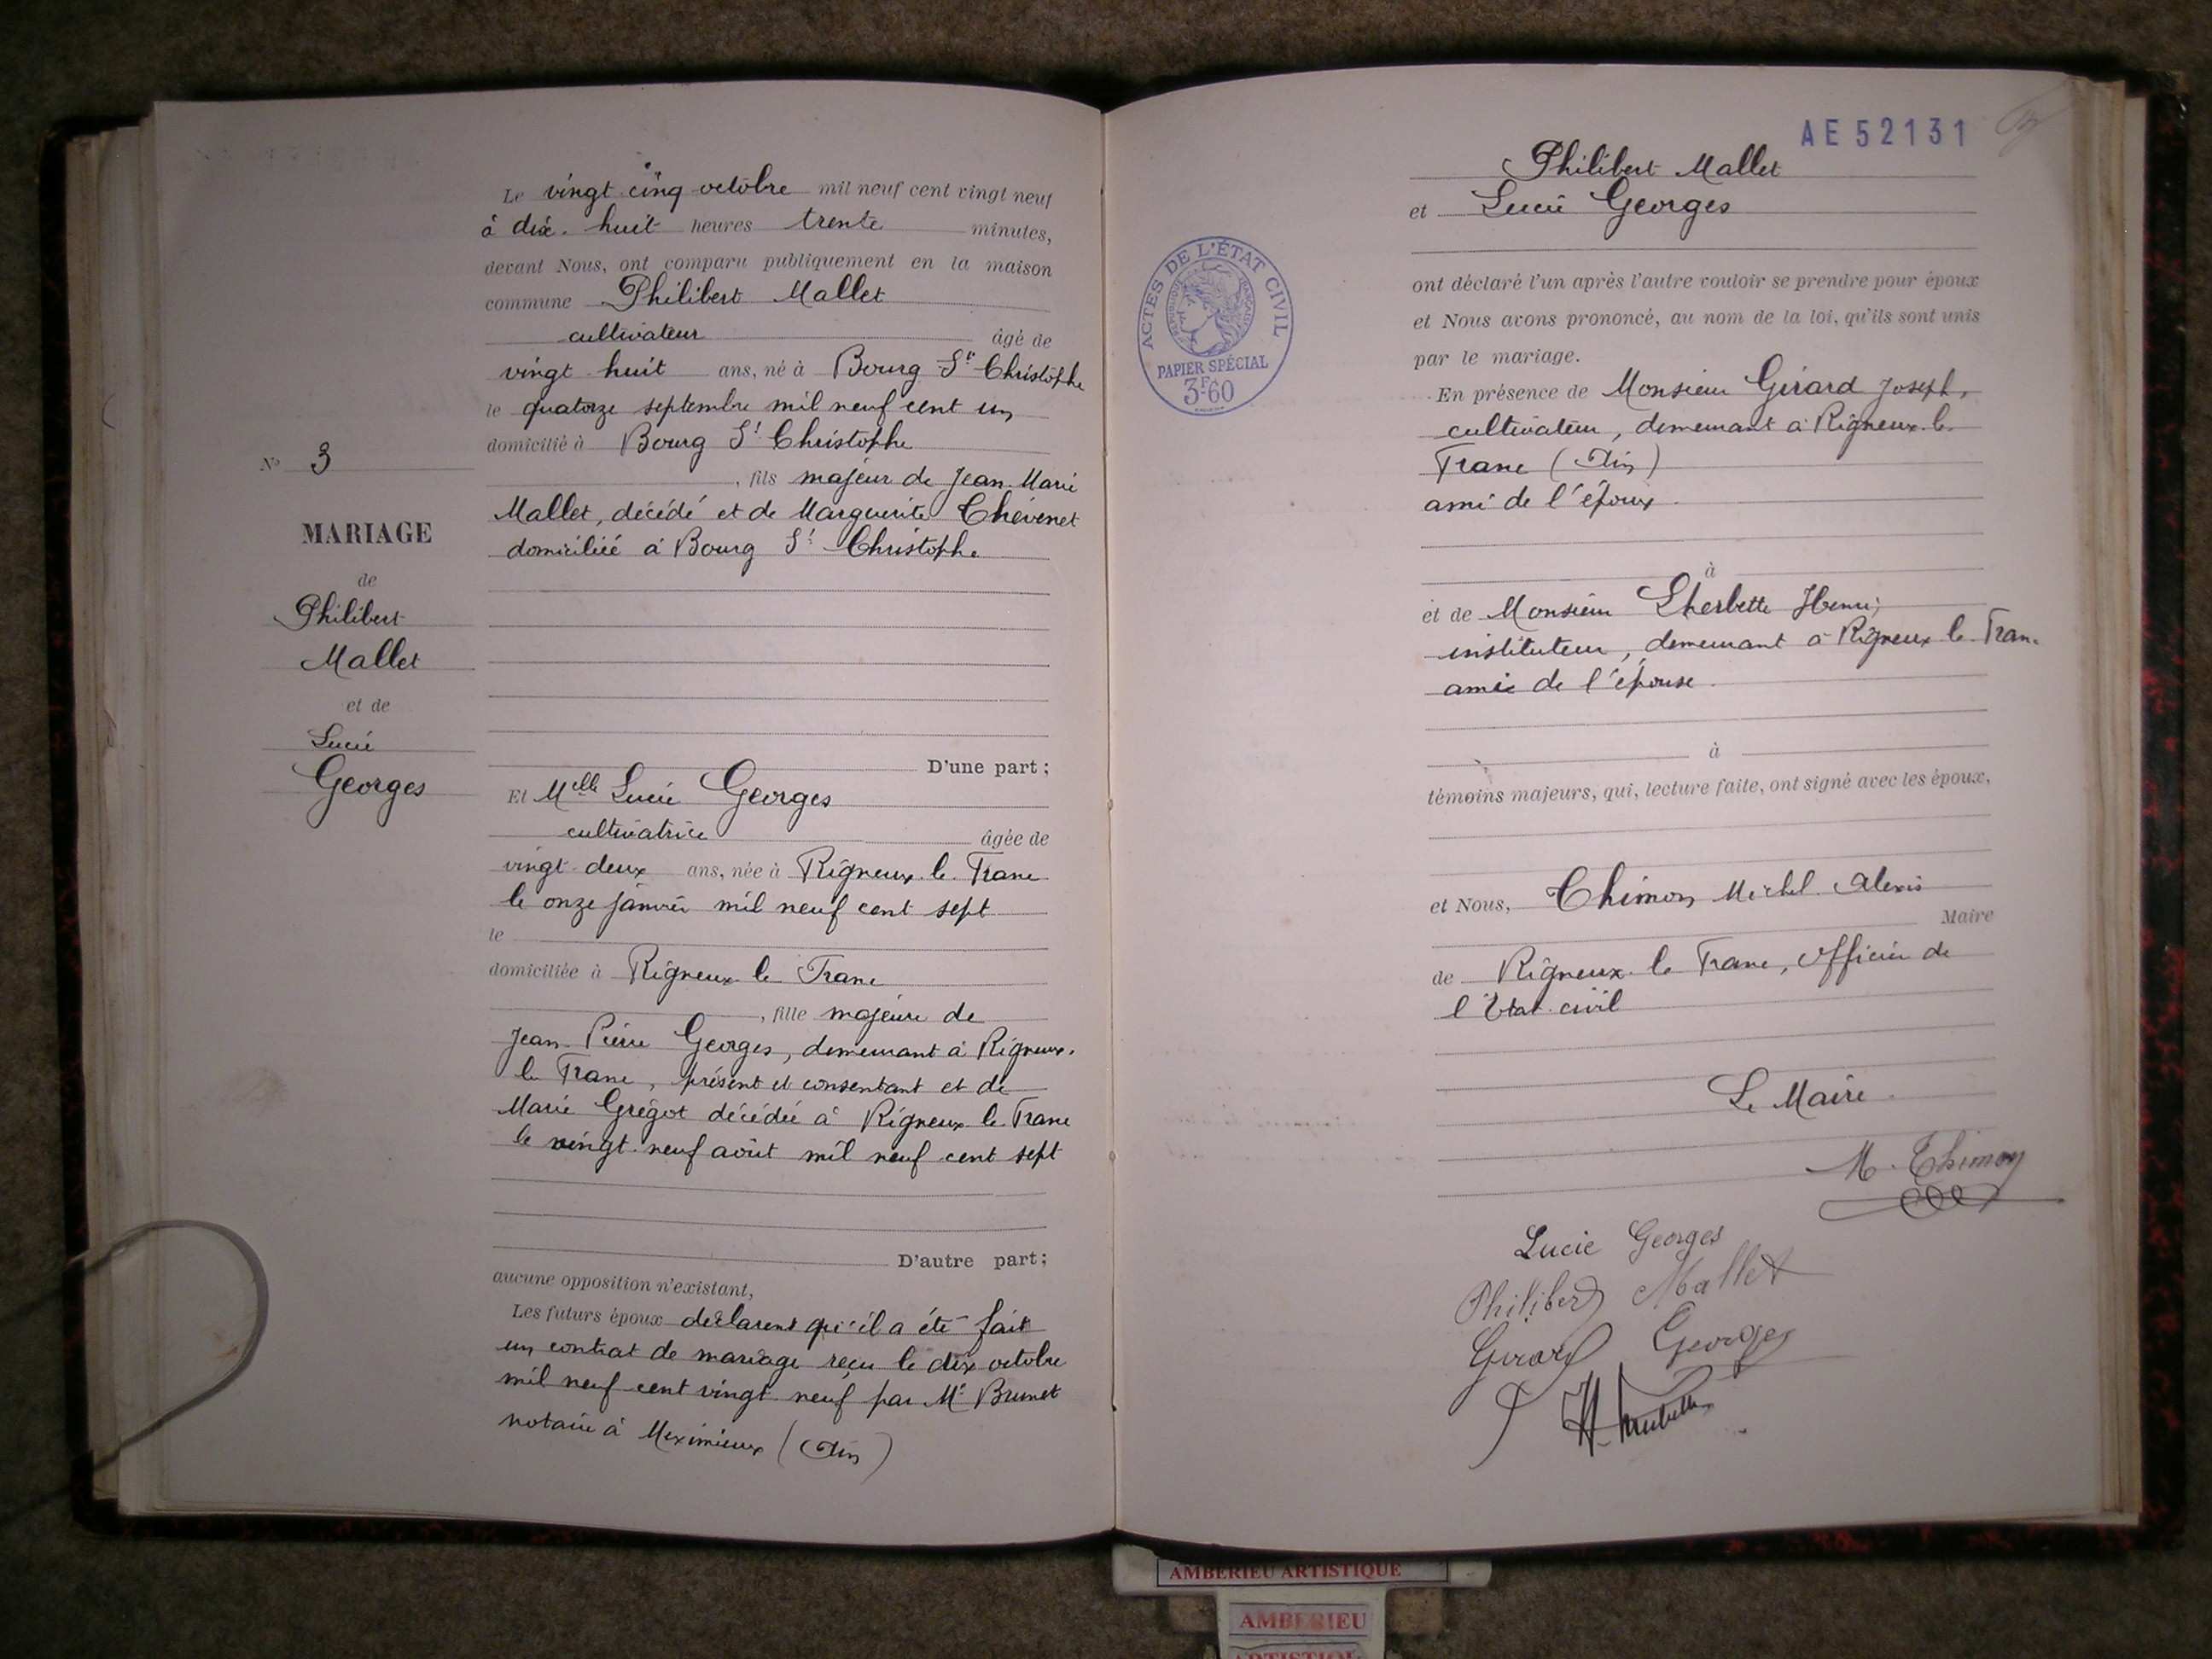 N° 3
MARIAGE
de
Philibert
Mallet
et de
Lucie
Georges
Le vingt cinq octobre mil neuf cent vingt neuf
à dix-huit heures trente minutes,
devant Nous, ont comparu publiquement en la maison
commune Philibert Mallet
cultivateur âgé de
vingt huit ans, né à Bourg St Christophe
le quatorze septembre mil neuf cent un
domicilié à Bourg St Christophe
, fils majeur de Jean-Marie
Mallet, décédé et de Marguerite Chévenet
domiciliée à Bourg St Christophe
D'une part ;
Et Melle Lucie Georges
cultivatrice âgée de
vingt-deux ans, née à Rigneux-le-Franc
le onze janvier mil neuf cent sept
le
domiciliée à Rigneux-le-Franc
, fille majeure de
Jean-Pierre Georges, demeurant à Rigneux-
le-Franc, présent et consentant et de
Marie Grégot décédée à Rigneux-le-Franc
le vingt-neuf août mil neuf cent sept
D'autre part ;
aucune opposition n'existant,
Les futurs époux déclarent qu'il a été fait
un contrat de mariage reçu le dix octobre
mil neuf cent vingt neuf par Me Brunet
notaire à Meximieux (Ain)
AE 52131
Philibert Mallet
et Lucie Georges
ACTES DE L'ÉTAT CIVIL
RÉPUBLIQUE FRANÇAISE
PAPIER SPÉCIAL
3F60
ont déclaré l'un après l'autre vouloir se prendre pour époux
et Nous avons prononcé, au nom de la loi, qu'ils sont unis
par le mariage.
En présence de Monsieur Girard Joseph,
cultivateur, demeurant à Rigneux-le-
Franc (Ain)
ami de l'époux
à
et de Monsieur Lherbette Henri,
instituteur, demeurant à Rigneux-le-Franc
ami de l'épouse
à
témoins majeurs, qui, lecture faite, ont signé avec les époux,
et Nous, Thimon Michel Alexis
Maire
de Rigneux-le-Franc, officier de
l'Etat-civil
Le Maire
M. Thimon
Lucie Georges
Philibert Mallet
Girard Georges
AMBERIEU ARTISTIQUE
AMBERIEU
ARTISTIQUE